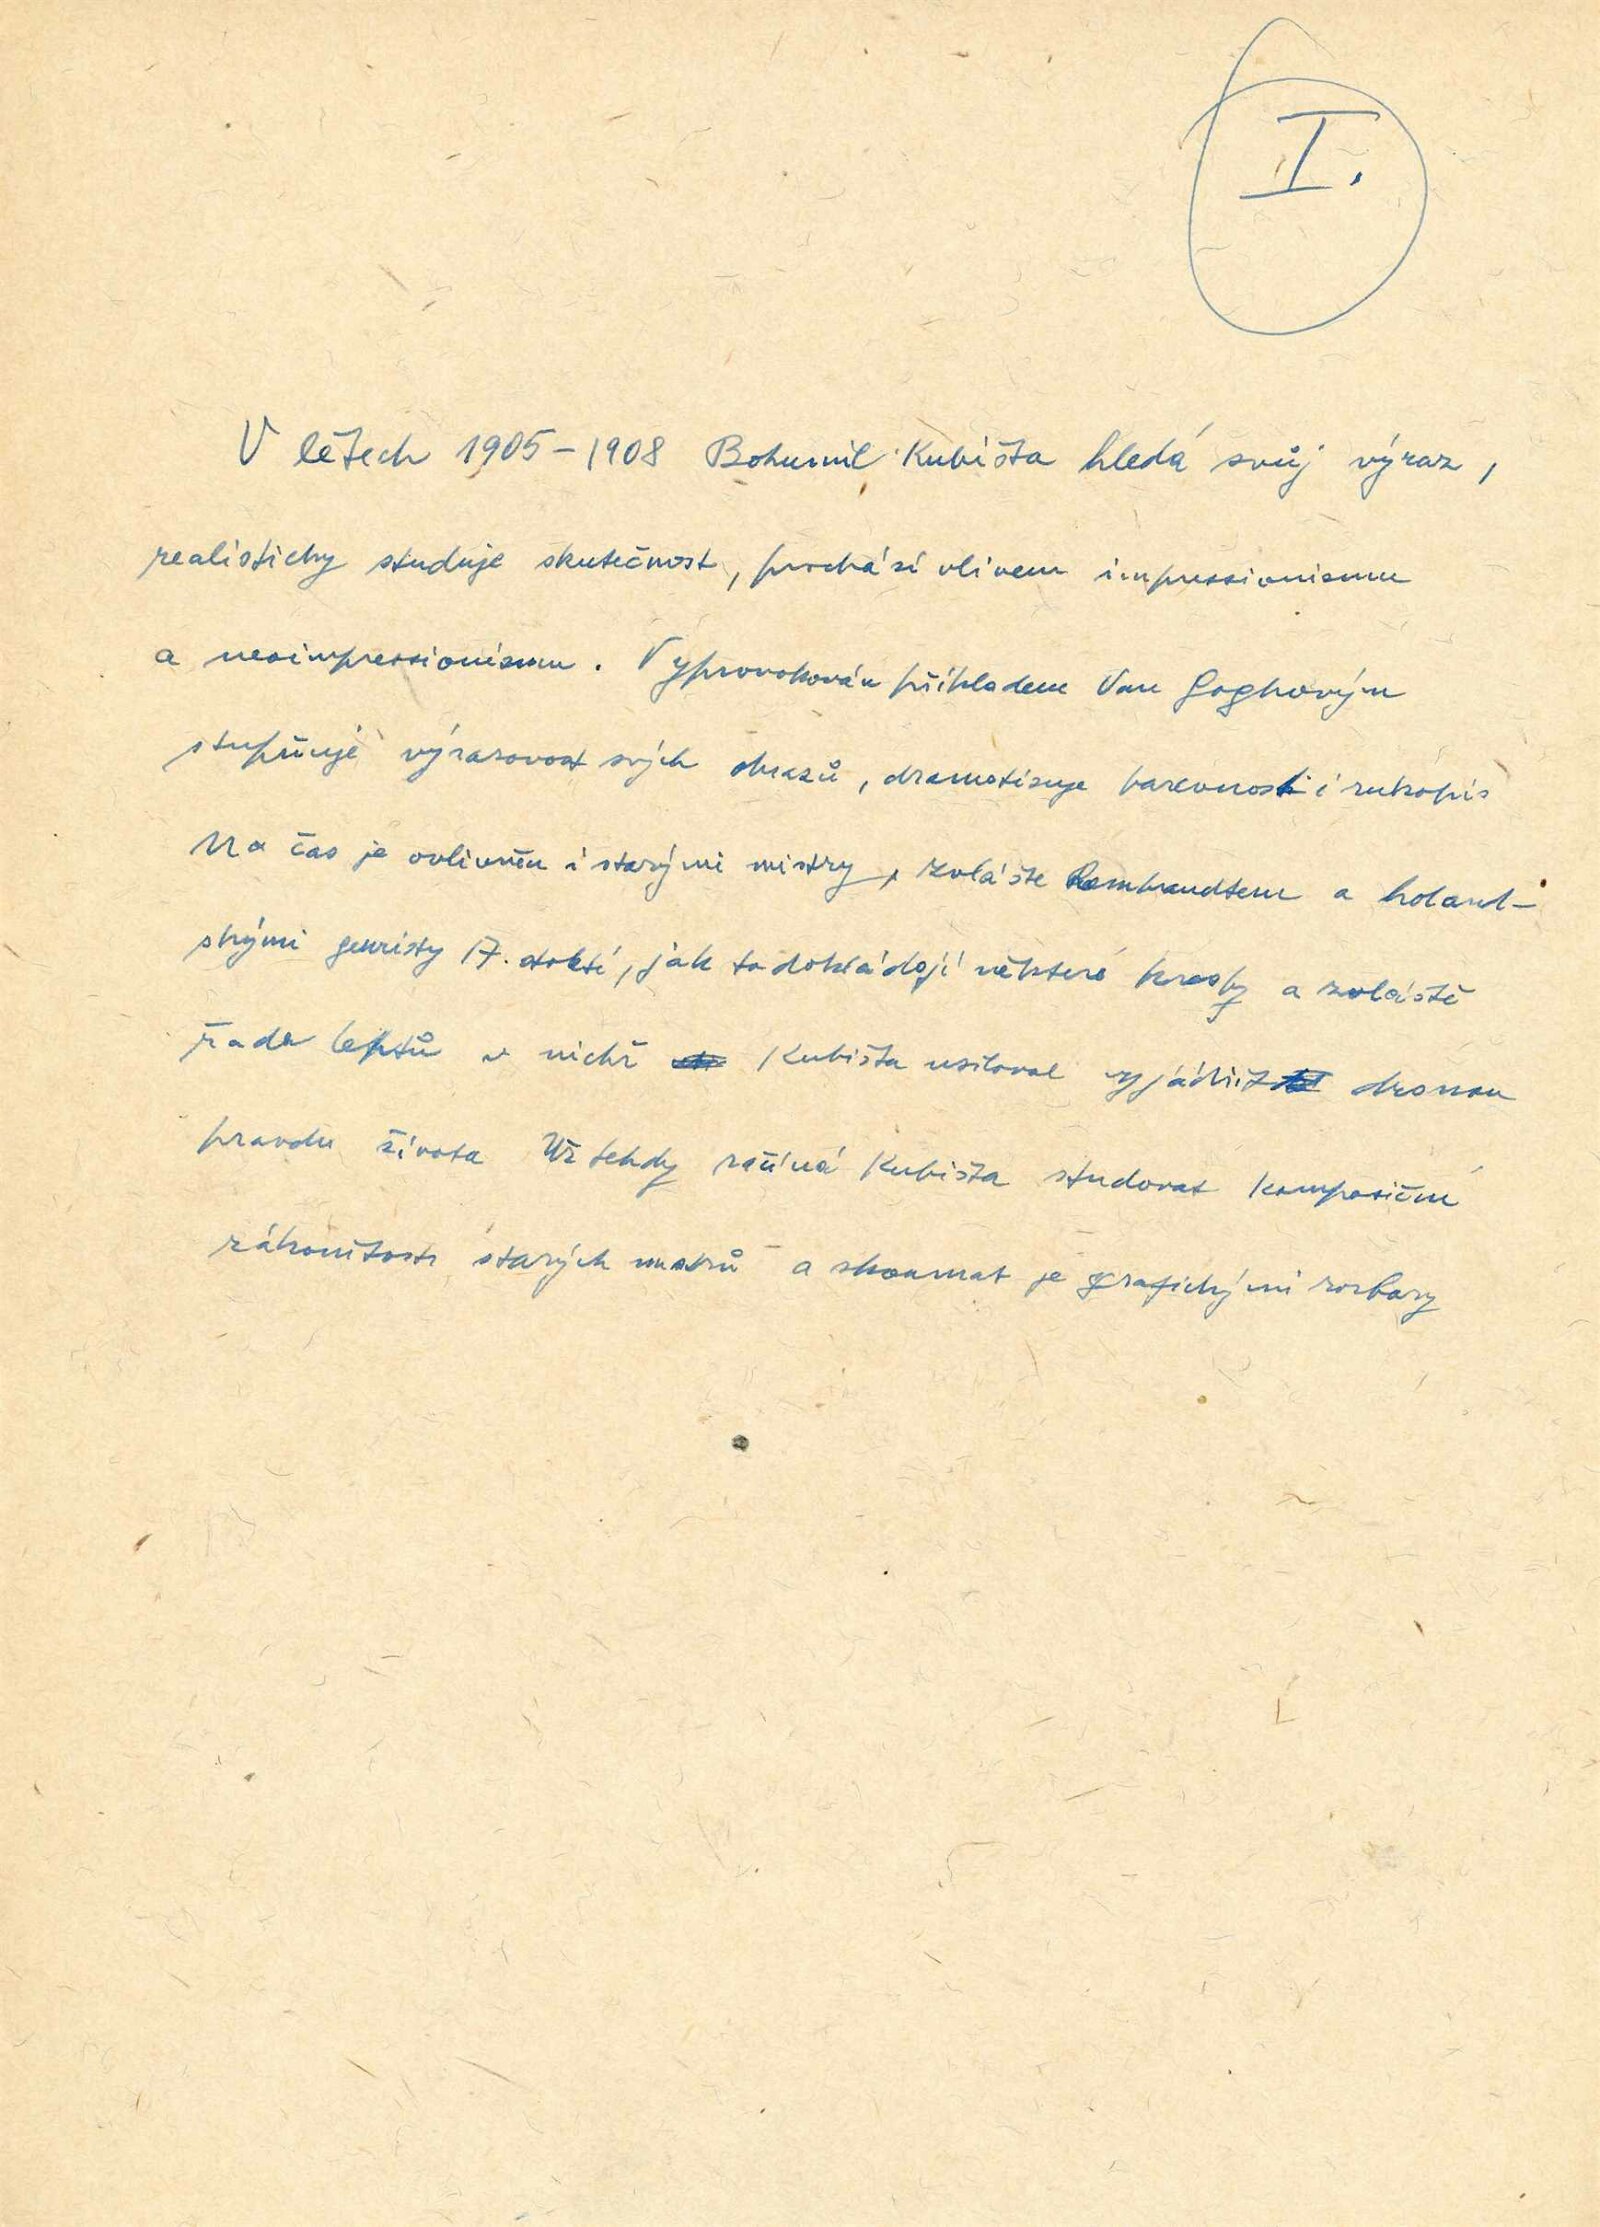 I.
V létech 1905-1908 Bohumil Kubišta hledá svůj výraz,
realisticky studuje skutečnost, prochází vlivem impressionismu
a neoimpressionismu. Vyprovokován příkladem Van Goghovým
stupňuje výrazovost svých obrazů, dramatisuje barevnost i rukopis
Na čas je ovlivněn i starými mistry, zvláště Rembrandtem a holand-
skými genristy 17. století, jak to dokládají některé kresby a zvláště
řada leptů v nichž Kubišta usiloval vyjádřit drsnou
pravdu života Už tehdy začíná Kubišta studovat komposiční
zákonitosti starých mistrů a zkoumat je grafickými rozbory